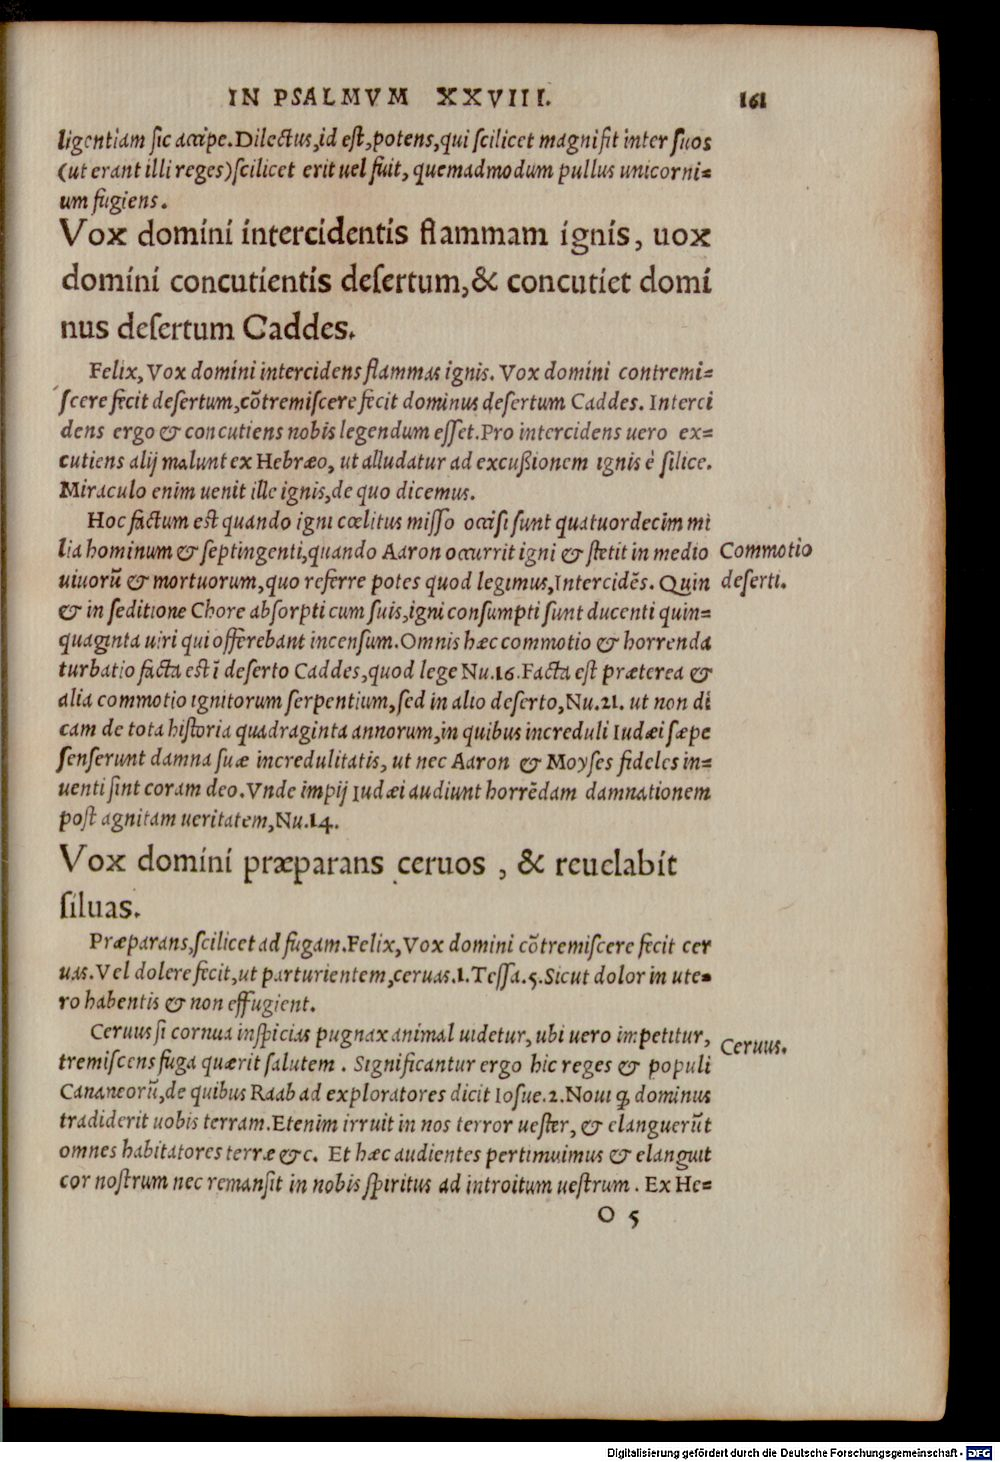 IN PSALMVM XXVIII. 161
ligentiam sic accipe. Dilectus, id est, potens, qui scilicet magnus sit inter suos
(ut erant illi reges) scilicet erit uel fuit, quemadmodum pullus unicorni=
um fugiens.
Vox domini intercidentis flammam ignis, uox
domini concutientis desertum, & concutiet domi
nus desertum Caddes.
Felix, Vox domini intercidens flammas ignis. Vox domini contremi=
scere fecit desertum, cōtremiscere fecit dominus desertum Caddes. Interci
dens ergo & concutiens nobis legendum esset. Pro intercidens uero ex=
cutiens alij malunt ex Hebræo, ut alludatur ad excussionem ignis è silice.
Miraculo enim uenit ille ignis, de quo dicemus.
Hoc factum est quando igni cœlitus misso occisi sunt quatuordecim mi
lia hominum & septingenti, quando Aaron occurrit igni & stetit in medio
Commotio
uiuorū & mortuorum, quo referre potes quod legimus, Intercidēs. Quin
deserti.
& in seditione Chore absorpti cum suis, igni consumpti sunt ducenti quin=
quaginta uiri qui offerebant incensum. Omnis hæc commotio & horrenda
turbatio facta est ī deserto Caddes, quod lege Nu.16. Facta est præterea &
alia commotio ignitorum serpentium, sed in alio deserto, Nu.21. ut non di
cam de tota historia quadraginta annorum, in quibus increduli Iudæi sæpe
senserunt damna suæ incredulitatis, ut nec Aaron & Moyses fideles in=
uenti sint coram deo. Vnde impij Iudæi audiunt horrēdam damnationem
post agnitam ueritatem, Nu.14.
Vox domini præparans ceruos, & reuelabit
siluas.
Præparans, scilicet ad fugam. Felix, Vox domini cōtremiscere fecit cer
uas. Vel dolere fecit, ut parturientem, ceruas. 1. Tessa.5. Sicut dolor in ute=
ro habentis & non effugient.
Ceruus si cornua inspicias pugnax animal uidetur, ubi uero impetitur,
Ceruus.
tremiscens fuga quærit salutem. Significantur ergo hic reges & populi
Cananeorū, de quibus Raab ad exploratores dicit Iosue.2. Noui ꝙ dominus
tradiderit uobis terram. Etenim irruit in nos terror uester, & elanguerūt
omnes habitatores terræ &c. Et hæc audientes pertimuimus & elanguit
cor nostrum nec remansit in nobis spiritus ad introitum uestrum. Ex He=
O 5
Digitalisierung gefördert durch die Deutsche Forschungsgemeinschaft - DFG